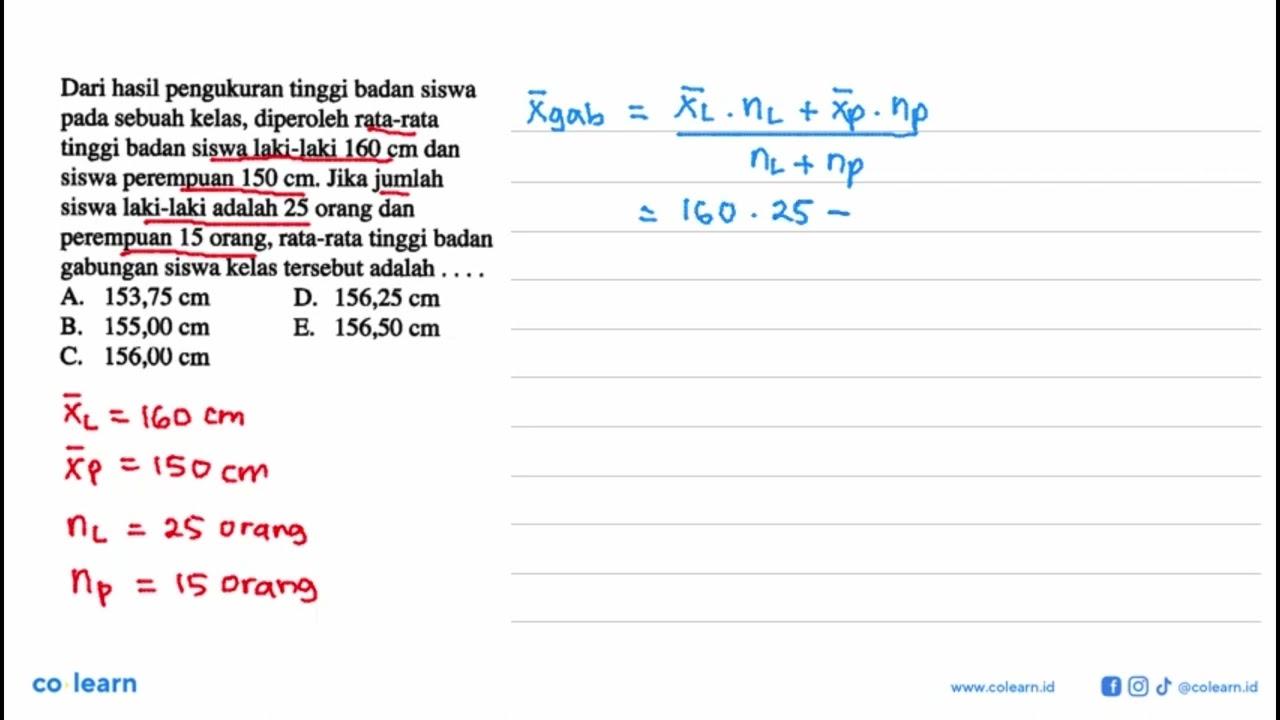 Dari hasil pengukuran tinggi badan siswa
pada sebuah kelas, diperoleh rata-rata
tinggi badan siswa laki-laki 160 cm dan
siswa perempuan 150 cm. Jika jumlah
siswa laki-laki adalah 25 orang dan
perempuan 15 orang, rata-rata tinggi badan
gabungan siswa kelas tersebut adalah . . . .
A. 153,75 cm D. 156,25 cm
B. 155,00 cm E. 156,50 cm
C. 156,00 cm
x̄L = 160 cm
x̄p = 150 cm
nL = 25 orang
np = 15 orang
x̄gab = x̄L . nL + x̄p . np
nL + np
= 160 . 25 –
co learn
www.colearn.id @colearn.id